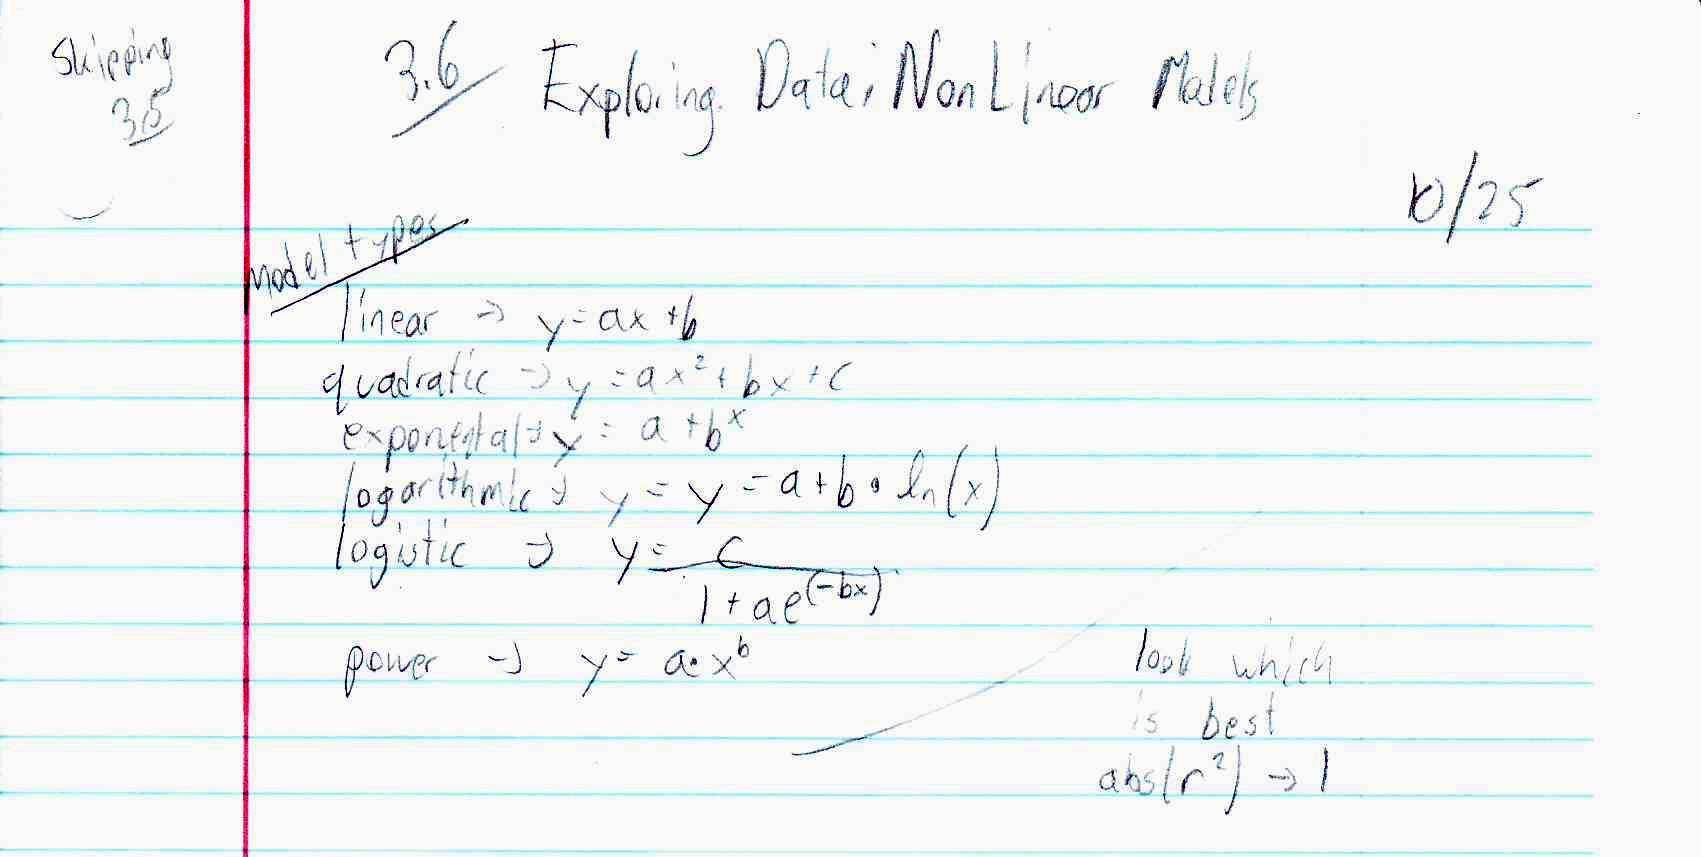 Skipping
3.5
3.6 Exploring Data: NonLinear Models
10/25
Model types
linear → y = ax + b
quadratic → y = ax² + bx + c
exponential → y = a + b^x
logarithmic → y = y = a + b • ln(x)
logistic → y = c
1 + ae^(-bx)
power → y = a • x^b
look which
is best
abs(r²) → 1